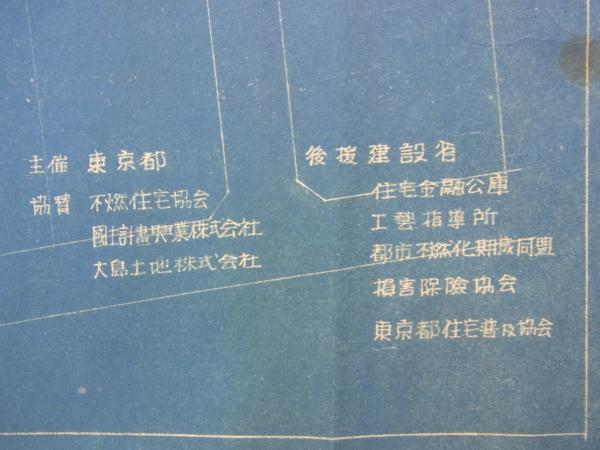 主催 東京都
協賛 不燃住宅協会
國土計畫興業株式会社
大島土地株式会社
後援 建設省
住宅金融公庫
工藝指導所
都市不燃化期成同盟
損害保険協会
東京都住宅普及協会